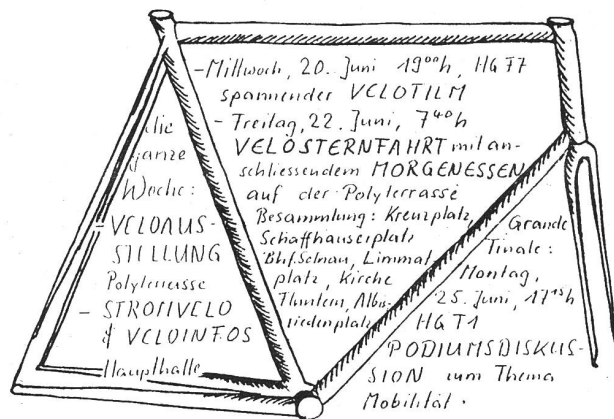 die
ganze
Woche:
- VELOAUS-
STELLUNG
Polyterrasse
- STROMVELO
& VELOINFOS
Haupthalle
- Mittwoch, 20. Juni 19⁰⁰h, HG F7
spannender VELOFILM
- Freitag, 22. Juni, 7⁴⁰h
VELOSTERNFAHRT mit an-
schliessendem MORGENESSEN
auf der Polyterrasse
Besammlung: Kreuzplatz,
Schaffhauserplatz
Bhf. Selnau, Limmat-
platz, Kirche
Fluntern, Albis-
riedenplatz
Grande
Finale:
Montag,
25. Juni, 17¹⁵h
HG F1
PODIUMSDISKUS-
SION zum Thema
Mobilität.